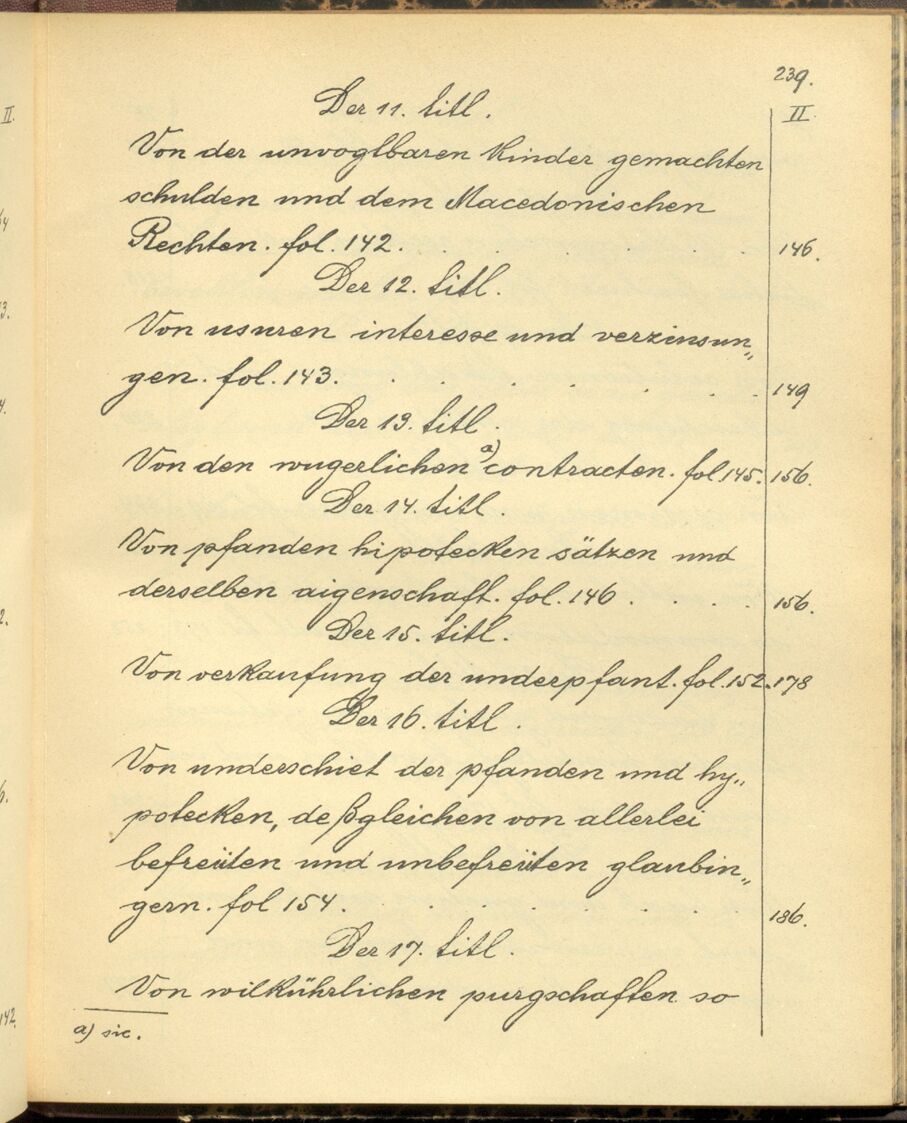 239.
II.
Der 11. titl.
Von der unvoglbaren Kinder gemachten
schulden und dem Macedonischen
Rechten. fol. 142. . . . . . . 146.
Der 12. titl.
Von usuren interesse und verzinsun„
gen. fol. 143. . . . . . . . 149
Der 13. titl.
Von den wugerlichen a) contracten. fol. 145. 156.
Der 14. titl.
Von pfanden hipotecken sätzen und
derselben aigenschaft. fol. 146 . . . . 156.
Der 15. titl.
Von verkaufung der underpfant. fol. 152. 178
Der 16. titl.
Von underschiet der pfanden und hy„
potecken, deßgleichen von allerlei
befreüten und unbefreüten glaubin„
gern. fol 154. . . . . . . 186.
Der 17. titl.
Von wilkührlichen purgschaften so
a) sic.
II.
142.